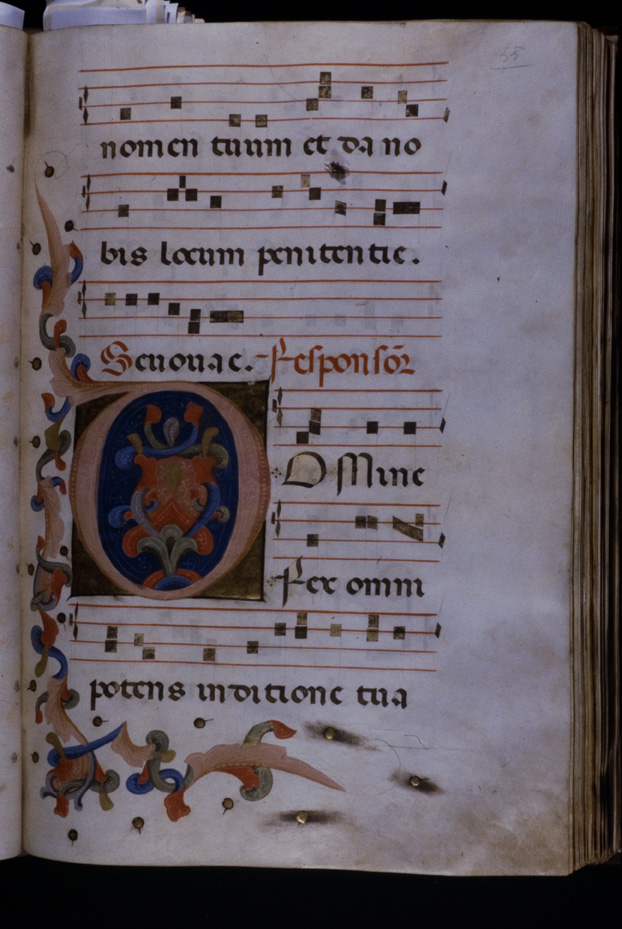 55
nomen tuum et da no
bis locum penitentie.
Seuouae. Responsor̄
O DMine
Rex omni
potens in ditione tua